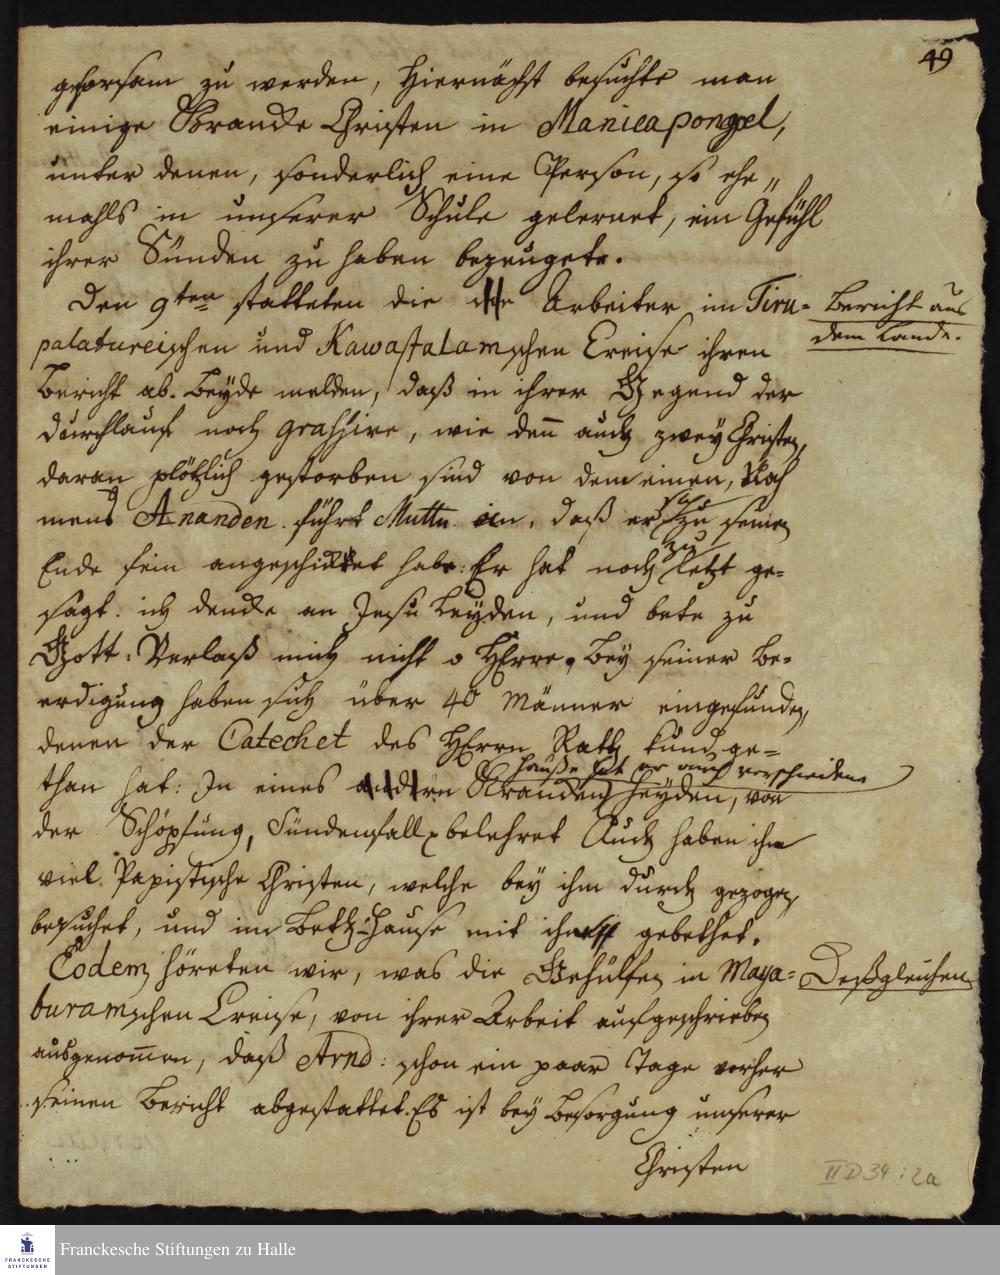 49
gehorsam zu werden, Hiernächst besuchte man
einige Krancke Christen in Manicapongel,
unter denen, sonderlich eine Person, so ehe„
mahls in unserer Schule gelernet, ein Gefühl
ihrer Sünden zu haben bezeugete.
Den 9ten statteten die Arbeiter im Tiru-
palatureischen und Kawastalamschen Creise ihren
Bericht aus
dem Lande.
Bericht ab. Beyde melden, daß in ihrer Gegend der
Durchlauf noch grassire, wie den̅ auch zwey Christen
daran plötzlich gestorben sind von dem einen, Nah
mens Ananden führt Muttu an, daß er sich zu seinem
Ende fein angeschicket habe: Er hat noch zu letzt ge-
sagt. ich dencke an Jesu Leyden, und bete zu
Gott: Verlaß mich nicht o HErre, Bey seiner Be-
erdigung haben sich über 40 Männer eingefunden,
denen der Catechet des HErrn Rath kund ge-
than hat: In eines Krancken Hauße hat er auch verschiedene Heyden, von
der Schöpfung, Sündenfall belehret Auch haben ihn
viel Papistische Christen, welche bey ihm durch gezogen,
besuchet, und im Beth-Hause mit ihm gebethet.
Eodem höreten wir, was die Gehülfen in Maya-
Deßgleichen
buramschen Creise, von ihrer Arbeit aufgeschrieben
ausgenom̅en, daß Arnd: schon ein paar Tage vorher
seinen Bericht abgestattet. Es ist bey Besorgung unserer
Christen
II D 34 : 2a
Franckesche Stiftungen zu Halle
FRANCKESCHE
STIFTUNGEN